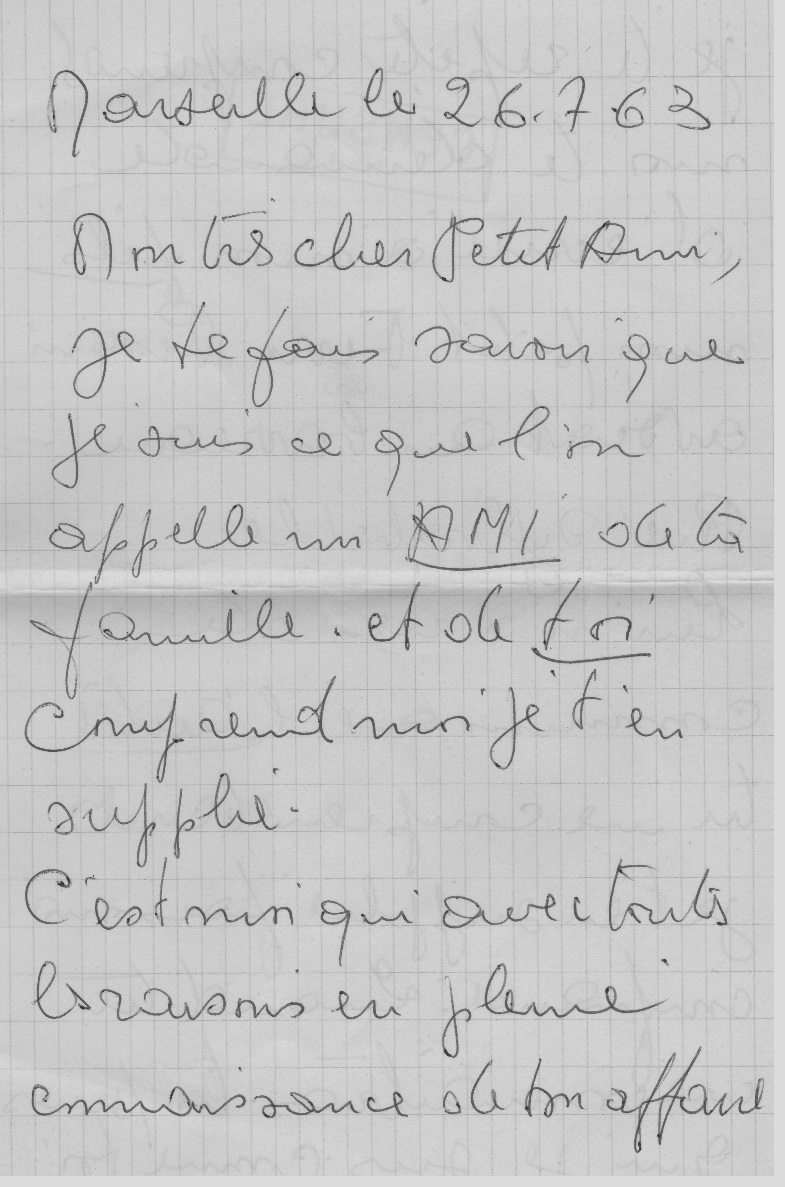 Marseille le 26.7.63
Mon très cher Petit Ami,
je te fais savoir que
je suis ce que l'on
appelle un AMI de ta
famille. et de toi
comprend moi je t'en
supplie.
C'est moi qui avec toutes
les raisons en pleine
connaissance de ton affaire